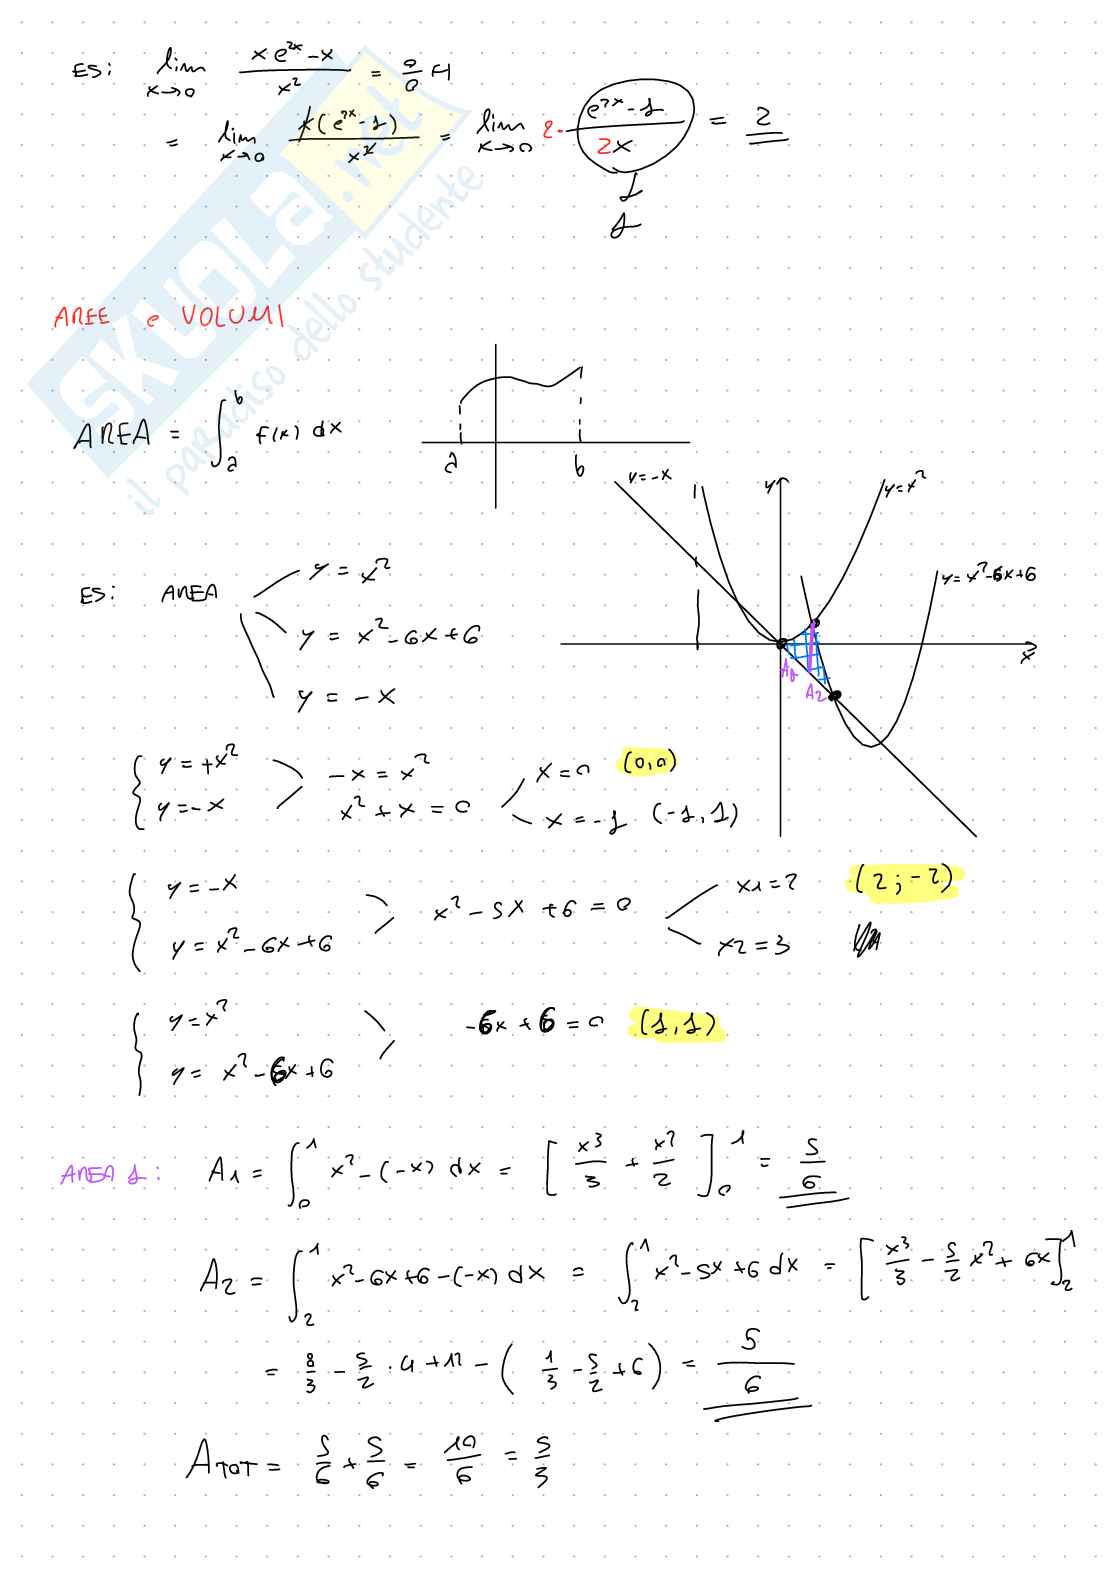 ES: lim x→0 (x e^(2x) - x)/x² = 0/0 FI
= lim x→0 x(e^(2x) - 1)/x² = lim x→0 2· (e^(2x) - 1)/(2x) = 2
↓
1
SKUOLA.net
il paradiso dello studente
AREE e VOLUMI
AREA = ∫_a^b f(x) dx
a b
y=-x y y=x²
y=x²-6x+6
x
A1
A2
ES: AREA y = x²
y = x² - 6x + 6
y = -x
{ y = +x²
y = -x
-x = x²
x² + x = 0
x = 0 (0,0)
x = -1 (-1,1)
{ y = -x
y = x² - 6x + 6
x² - 5x + 6 = 0
x1 = 2 (2;-2)
x2 = 3
{ y = x²
y = x² - 6x + 6
-6x + 6 = 0 (1,1)
AREA 1: A1 = ∫_0^1 x² - (-x) dx = [x³/3 + x²/2]_0^1 = 5/6
A2 = ∫_2^1 x² - 6x + 6 - (-x) dx = ∫_2^1 x² - 5x + 6 dx = [x³/3 - 5/2 x² + 6x]_2^1
= 8/3 - 5/2 · 4 + 12 - (1/3 - 5/2 + 6) = 5/6
ATOT = 5/6 + 5/6 = 10/6 = 5/3